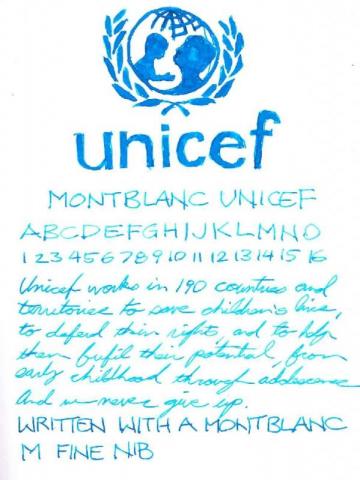 unicef
MONTBLANC UNICEF
ABCDEFGHIJKLMNO
1 2 3 4 5 6 7 8 9 10 11 12 13 14 15 16
Unicef works in 190 countries and
territories to save children's lives,
to defend their rights, and to help
them fulfil their potential, from
early childhood through adolescence
And we never give up.
WRITTEN WITH A MONTBLANC
M FINE NIB